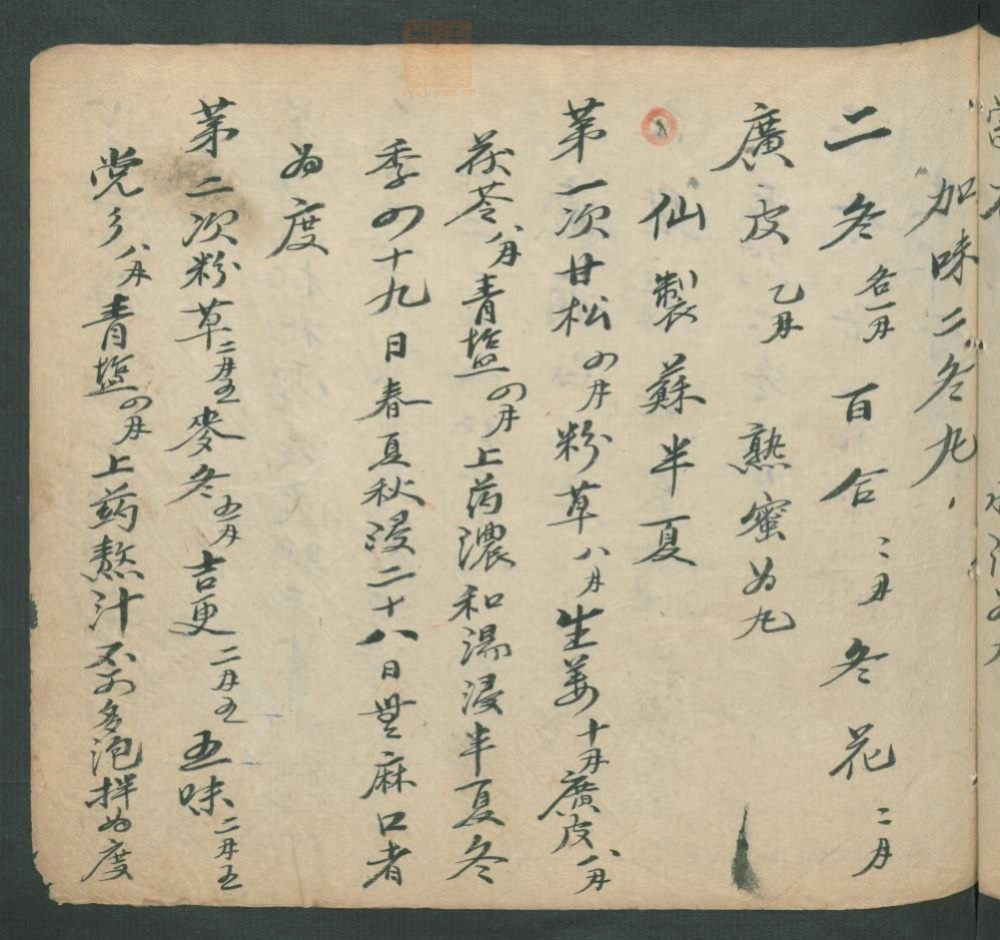 加味二冬丸
二冬各一月 百合二月 冬花二月
廣皮乙月 熟蜜為丸
仙製蘇半夏
苐一次甘松四月粉草八月生姜十月廣皮八月
茯苓八月青塩四月上药濃和湯浸半夏冬
季四十九日春夏秋浸二十八日無麻口者
為度
苐二次粉草二月五麥冬五月吉更二月五五味二月五
党参八月青塩四月上药熬汁不可多泡拌為度